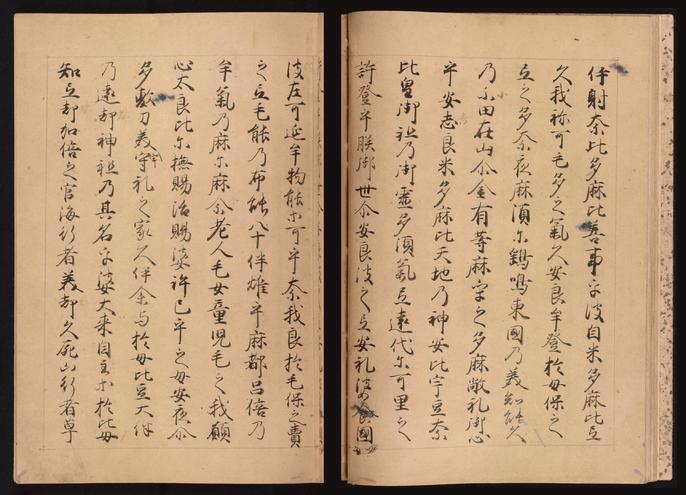 伊射奈比多麻比善事乎波自米多麻比弖
久我祢可毛多之氣久安良牟登於母保之
弖之多奈夜麻須尓鶏鳴東國乃美知能久
乃小田在山尓金有等麻宇之多麻敝礼御心
乎安志良米多麻比天地乃神安比宇豆奈
比皇御祖乃御靈多須氣弖遠代尓可里之
許登乎朕御世尓安良波之弖安礼婆食國
波左可延牟物能尓可牟奈我良於毛保之賣
之弖毛能乃布能八十伴雄乎麻都呂倍乃
牟氣乃麻尓麻尓老人毛女童児毛之我願
心太良比尓撫賜治賜婆許己乎之母安夜尓
多敷刀美宇礼之家久伊余与於母比弖大伴
乃遠都神祖乃其名乎婆大来目主等於比母
知弖都加倍之官海行者美都久死山行者草